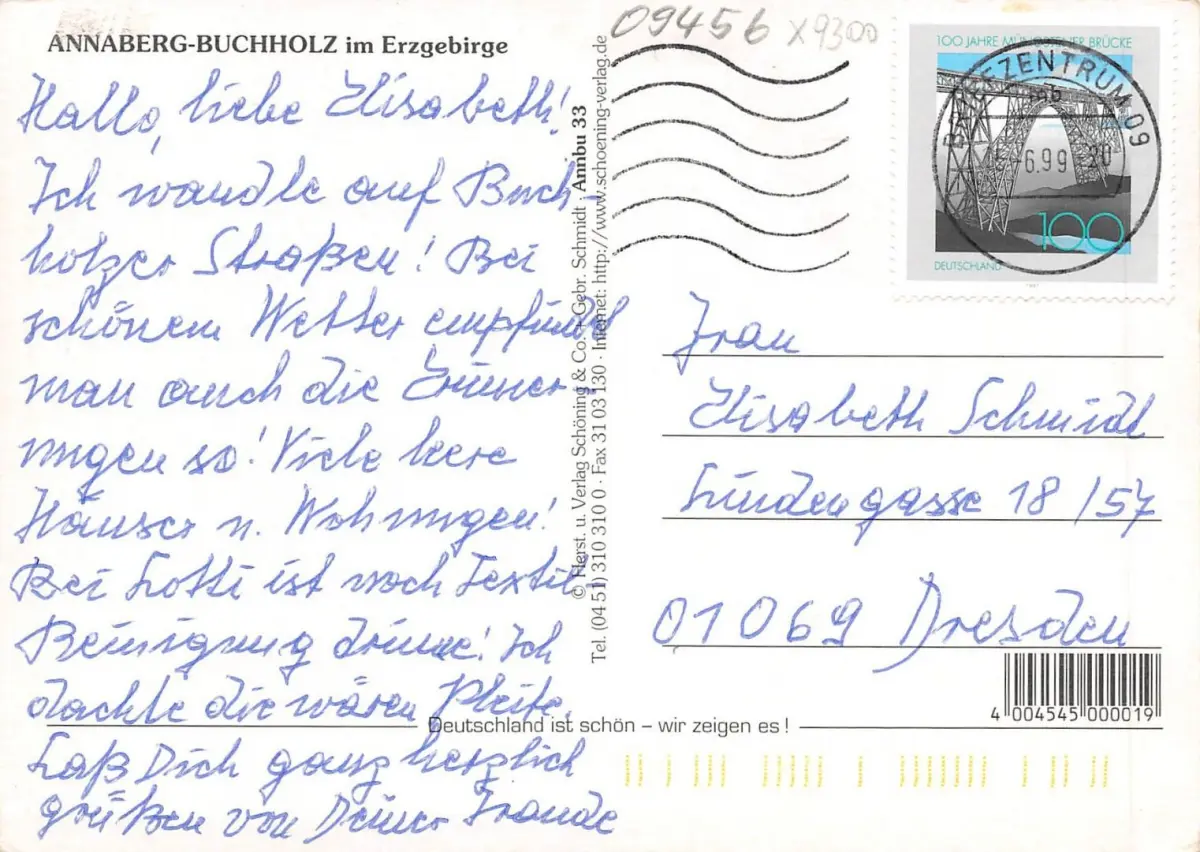 ANNABERG-BUCHHOLZ im Erzgebirge
Hallo, liebe Elisabeth!
Ich wandle auf Buch-
holzer Straßen! Bei
schönem Wetter empfindet
man auch die Erinner-
ungen so! Viele leere
Häuser u. Wohnungen!
Bei Lotti ist noch Textil-
Reinigung drinne! Ich
dachte die wären Pleite.
Laß Dich ganz herzlich
grüßen von Deiner Traude
© Herst. u. Verlag Schöning & Co. + Gebr. Schmidt Annbu 33
Tel. (04 51) 310 310 0 · Fax 31 03 130 · Internet: http://www.schoening-verlag.de
09456 x9300
100 JAHRE MÜNGSTENER BRÜCKE
100
DEUTSCHLAND
BRIEFZENTRUM 09
6.99-20
Frau
Elisabeth Schmidt
Lindengasse 18/57
01069 Dresden
4 004545 000019
Deutschland ist schön – wir zeigen es !